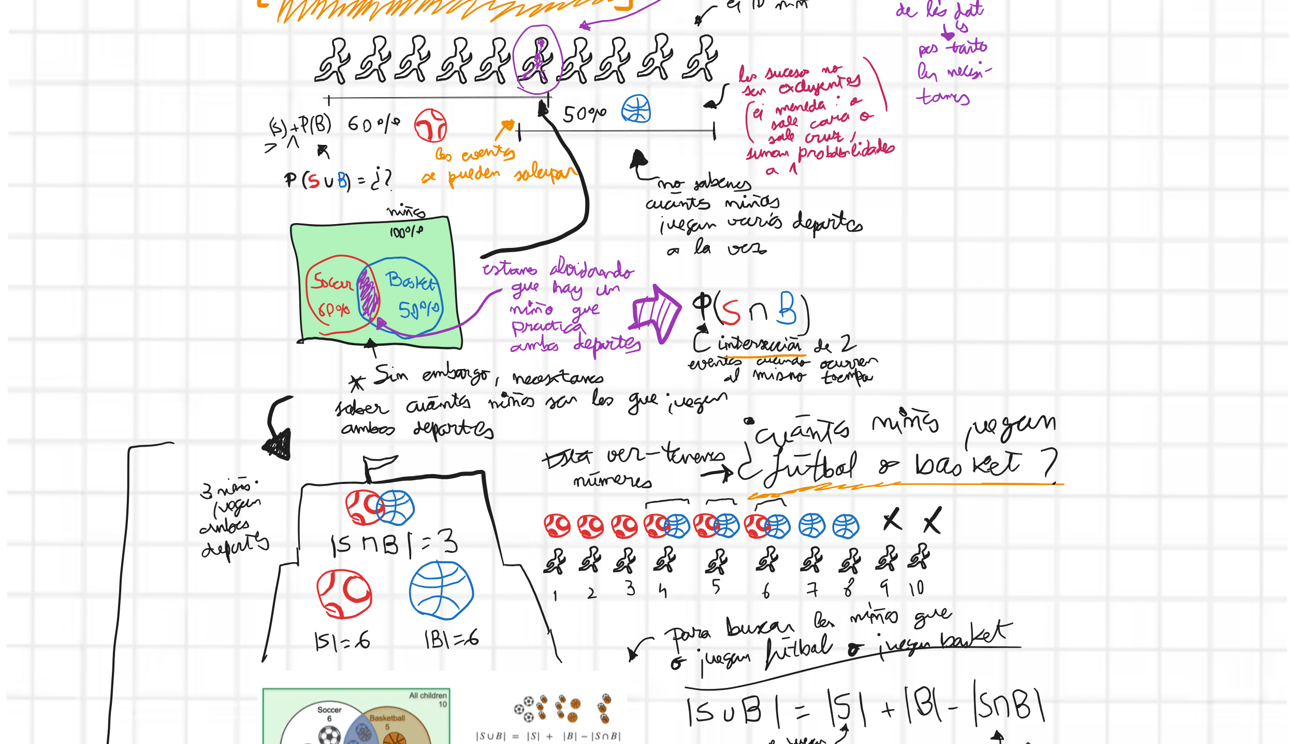 el 10 niñ
de los dat
s
pos tanto
las necesi-
tamos
los suceso no
son excluyentes
(ej moneda: o
sale cara o
sale cruz,
suman probabilidades
a 1
(S)+P(B) 60%
50%
los eventos
se pueden solapar
P(S∪B) = ¿?
no sabemos
cuántos niños
juegan varios deportes
a la vez
niños
100%
Soccer
60%
Basket
50%
estamos olvidando
que hay un
niño que
practica
ambos deportes
P(S∩B)
intersección de 2
eventos cuando ocurren
al mismo tiempo
* Sin embargo, necesitamos
saber cuántos niños son los que juegan
ambos deportes
3 niños
juegan
ambos
deportes
|S∩B|=3
|S|=6
|B|=6
ver-tenemos
números
¿cuántos niños juegan
¿fútbol o basket?
X X
1 2 3 4 5 6 7 8 9 10
para buscar los niños que
o juegan fútbol o juegan basket
|S∪B| = |S| + |B| - |S∩B|
All children
10
Soccer
6
Basketball
5
|S∪B| = |S| + |B| − |S∩B|